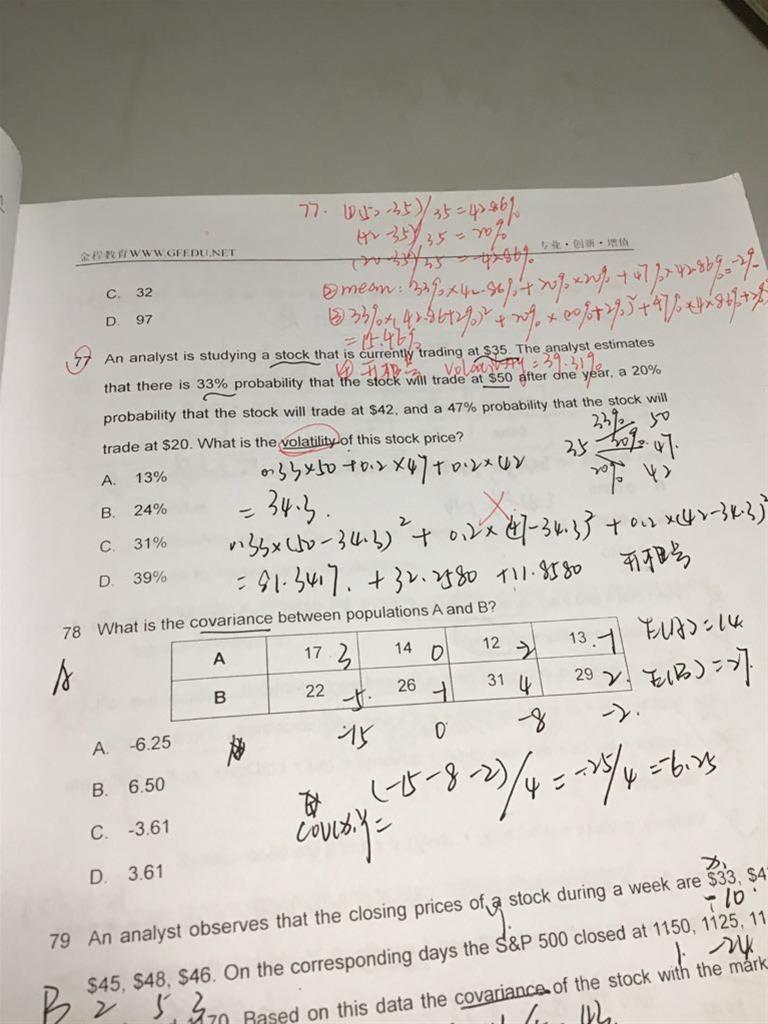 77. ①(50-35)/35=42.86%
(42-35)/35=20%
(20-35)/35=-42.86%
金程教育WWW.GFEDU.NET
专业·创新·增值
②mean: 33%×42.86%+20%×20%+47%×42.86%=-2%
C. 32
D. 97
=15.46%
77 An analyst is studying a stock that is currently trading at $35. The analyst estimates
④开根号 volatility=39.31%
that there is 33% probability that the stock will trade at $50 after one year, a 20%
probability that the stock will trade at $42, and a 47% probability that the stock will
trade at $20. What is the volatility of this stock price?
33% 50
35 20% 47.
20% 42
A. 13%
0.33×50+0.2×47+0.2×42
B. 24%
=34.3.
C. 31%
0.33×(50-34.3)²+0.2×(47-34.3)²+0.2×(42-34.3)²
D. 39%
=81.3417.+32.2580+11.8580 开根号
78 What is the covariance between populations A and B?
A
A 17 3 14 0 12 -2 13 -1 E(A)=14
B 22 -5. 26 -1 31 4 29 2. E(B)=27.
-15 0 -8 -2.
A. -6.25
B. 6.50
C. -3.61
D. 3.61
(-15-8-2)/4=-25/4=-6.25
cov(x.y)=
79 An analyst observes that the closing prices of a stock during a week are $33, $4
-10
$45, $48, $46. On the corresponding days the S&P 500 closed at 1150, 1125, 11
-24
B 2 5 3
70. Based on this data the covariance of the stock with the mark